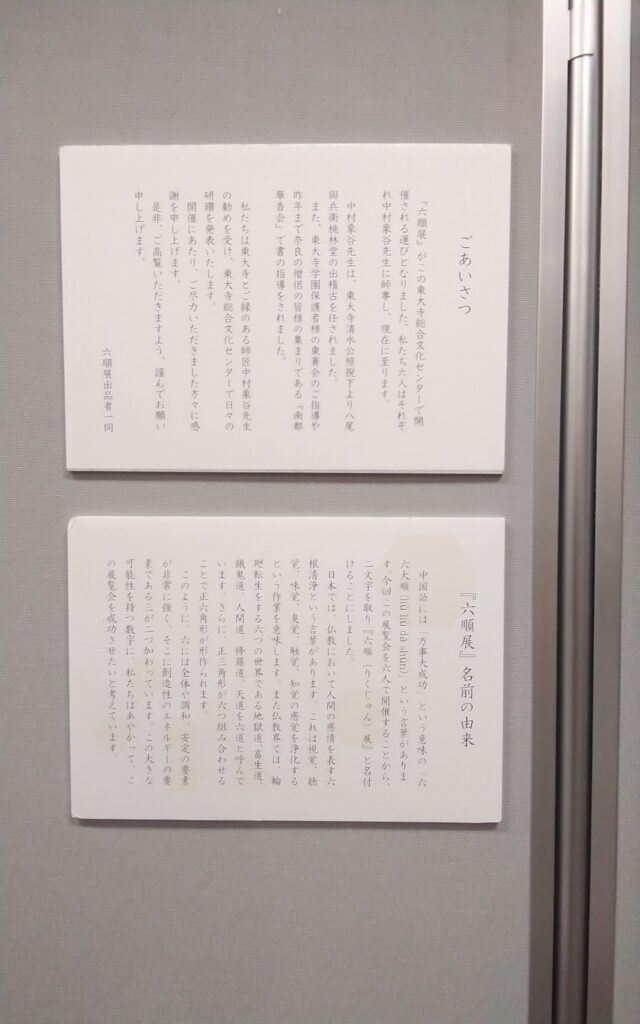 ごあいさつ
『六順展』がこの東大寺総合文化センターで開
催される運びとなりました。私たち六人はそれぞ
れ中村象谷先生に師事し、現在に至ります。
中村象谷先生は、東大寺清水公照猊下より八尾
與兵衛桃林堂の出稽古を任されました。
また、東大寺学園保護者様の東菁会のご指導や
昨年まで奈良の僧侶の皆様の集まりである『南都
華香会』で書の指導をされました。
私たちは東大寺とご縁のある師匠中村象谷先生
の勧めを受け、東大寺総合文化センターで日々の
研鑽を発表いたします。
開催にあたり、ご尽力いただきました方々に感
謝を申し上げます。
是非、ご高覧いただきますよう、謹んでお願い
申し上げます。
六順展出品者一同
『六順展』名前の由来
中国語には「万事大成功」という意味の「六
六大順（liù liù dà shùn）」という言葉がありま
す。今回この展覧会を六人で開催することから、
二文字を取り『六順（りくじゅん）展』と名付
けることにしました。
日本では、仏教において人間の感情を表す六
根清浄という言葉があります。これは視覚、聴
覚、味覚、臭覚、触覚、知覚の感覚を浄化する
という作業を意味します。また仏教界では、輪
廻転生をする六つの世界である地獄道、畜生道、
餓鬼道、人間道、修羅道、天道を六道と呼んで
います。さらに、正三角形が六つ組み合わせる
ことで正六角形が形作られます。
このように、六には全体や調和、安定の要素
が非常に強く、そこに創造性のエネルギーの要
素である三が二つ加わっています。この大きな
可能性を持つ数字に、私たちはあやかって、こ
の展覧会を成功させたいと考えています。